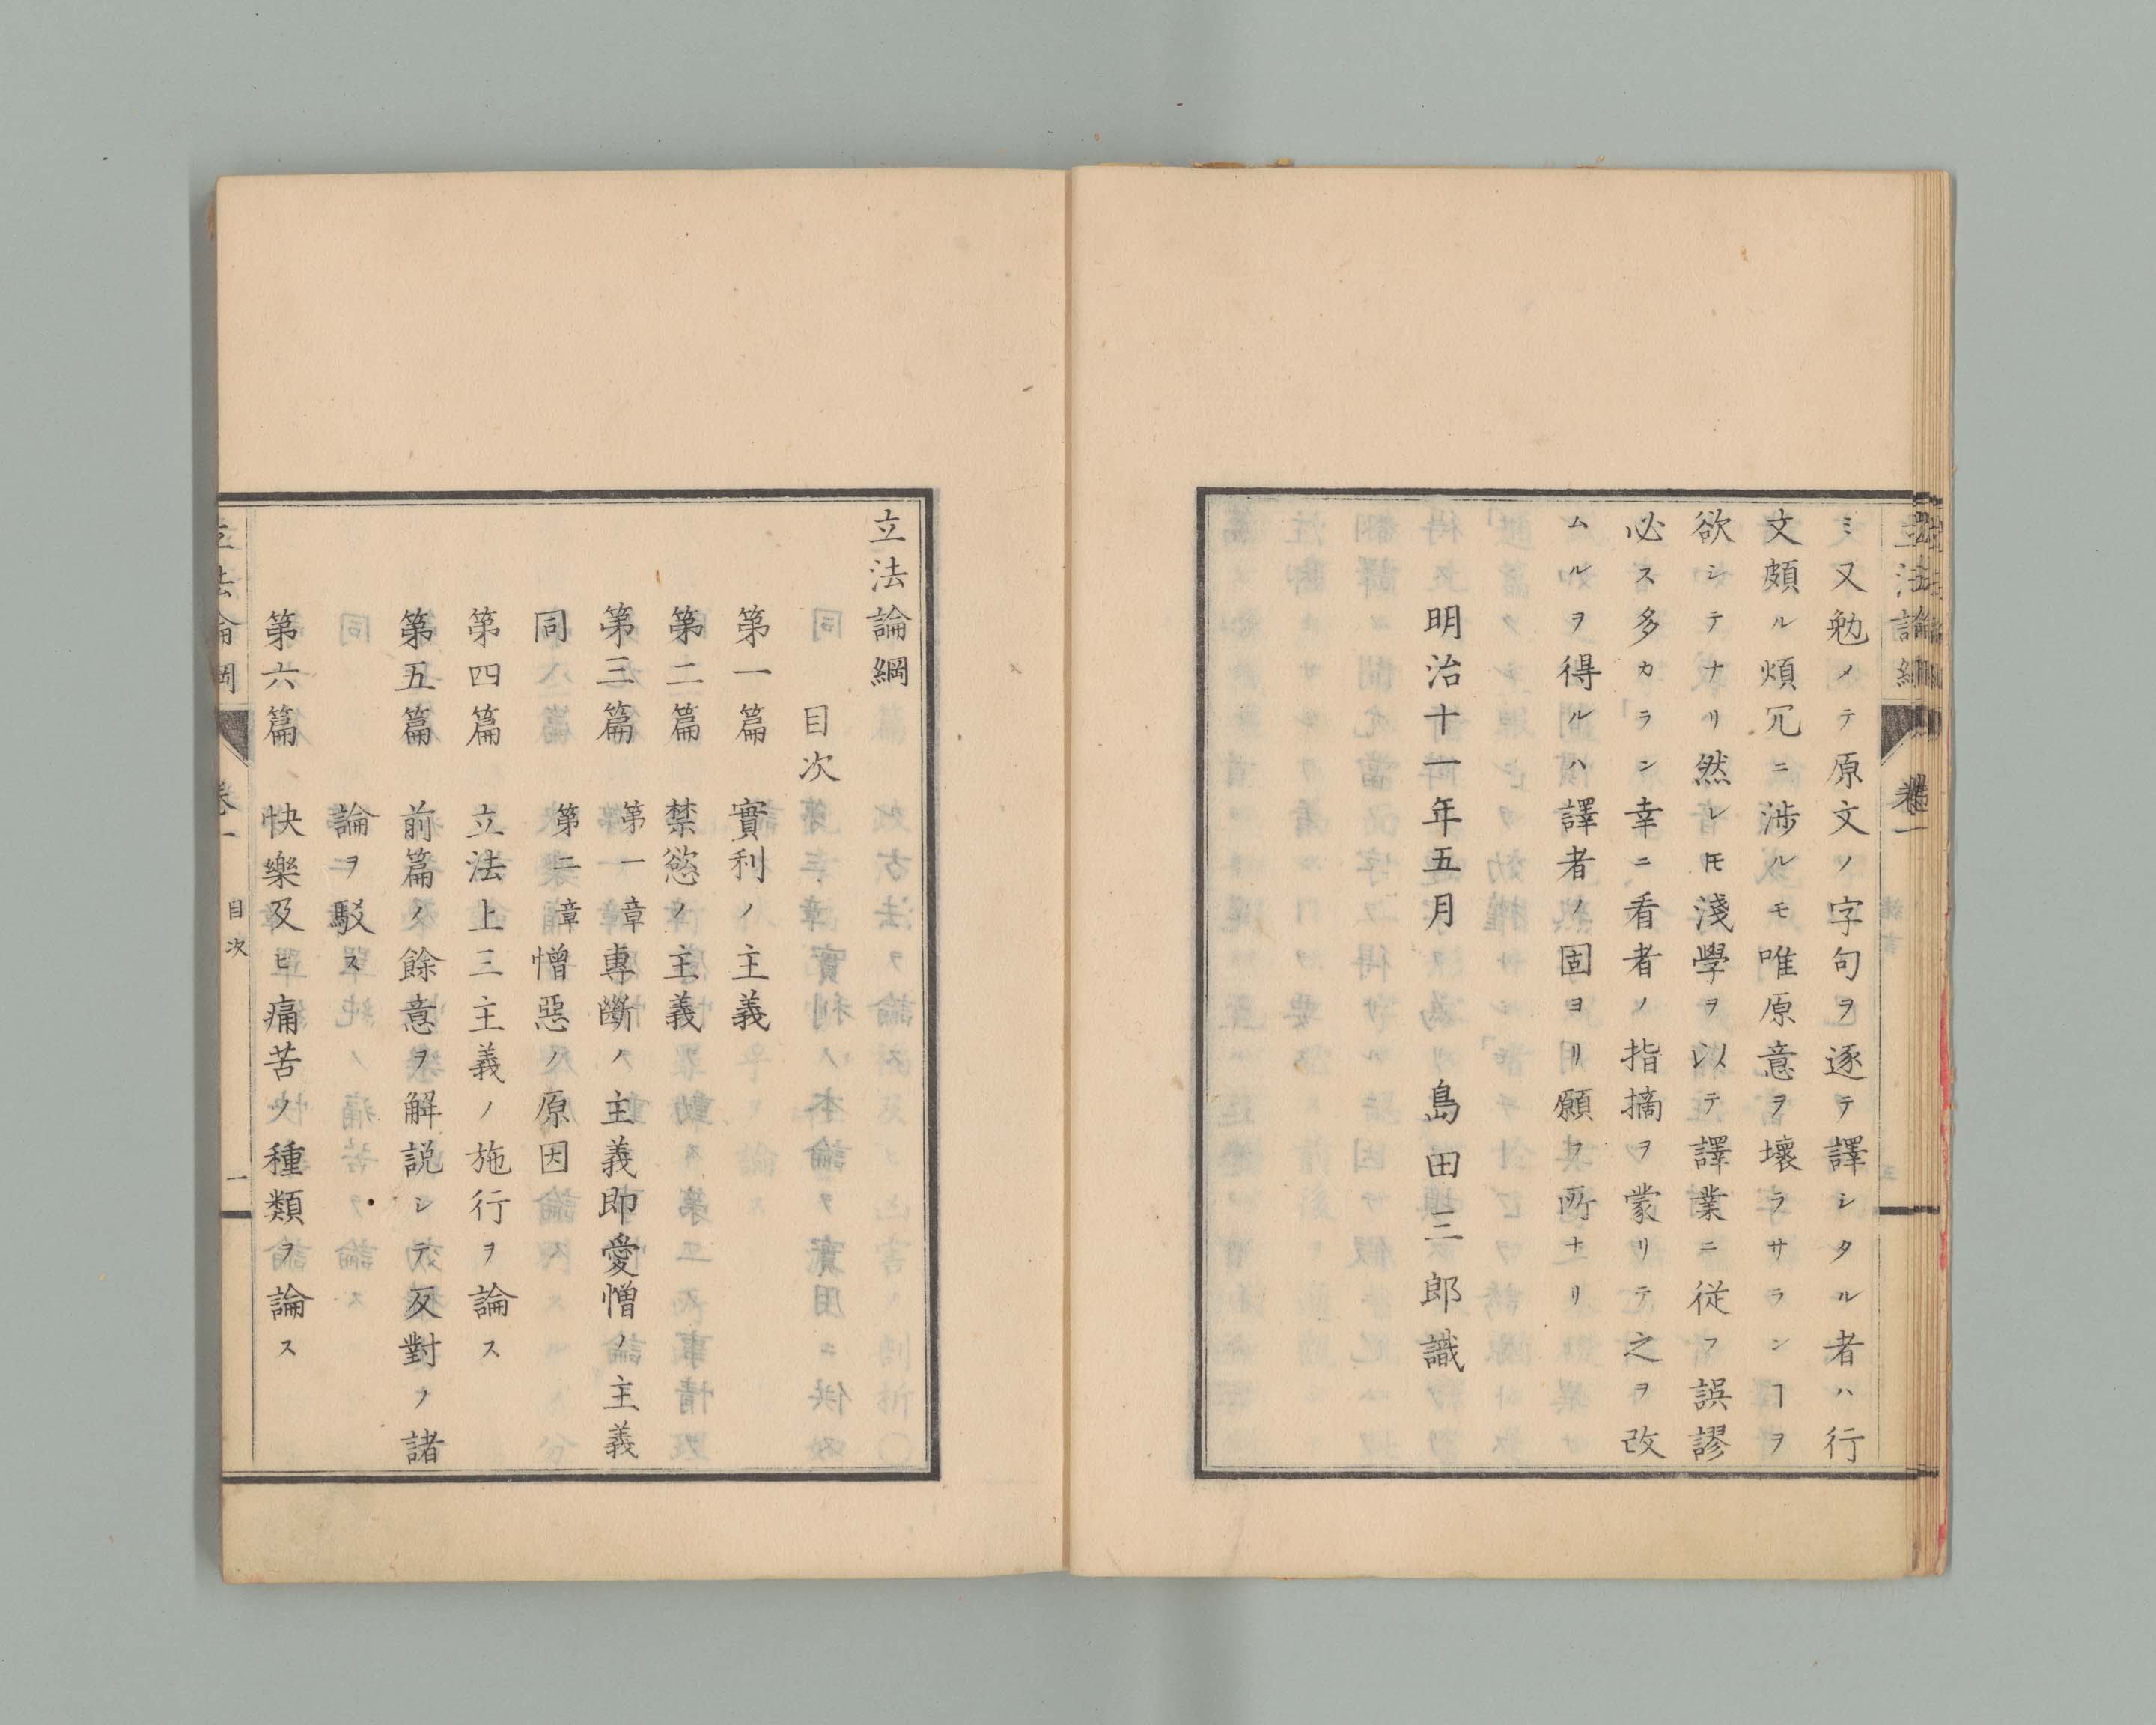 ミ又勉メテ原文ノ字句ヲ逐テ譯シタル者ハ行
文頗ル煩冗ニ渉ルモ唯原意ヲ壞ラサランヿヲ
欲シテナリ然レ𪜈淺學ヲ以テ譯業ニ從フ誤謬
必ス多カラン幸ニ看者ノ指摘ヲ蒙リテ之ヲ改
ムルヲ得ルハ譯者ノ固ヨリ願フ所ナリ
明治十一年五月 島田三郎識
立法論綱
目次
第一篇 實利ノ主義
第二篇 禁慾ノ主義
第三篇 第一章 專斷ノ主義即愛憎ノ主義
同 第二章 憎惡ノ原因
第四篇 立法上三主義ノ施行ヲ論ス
第五篇 前篇ノ餘意ヲ解説シテ反對ノ諸
論ヲ駁ス
第六篇 快樂及ヒ痛苦ノ種類ヲ論ス
立法論綱 卷一 目次 一